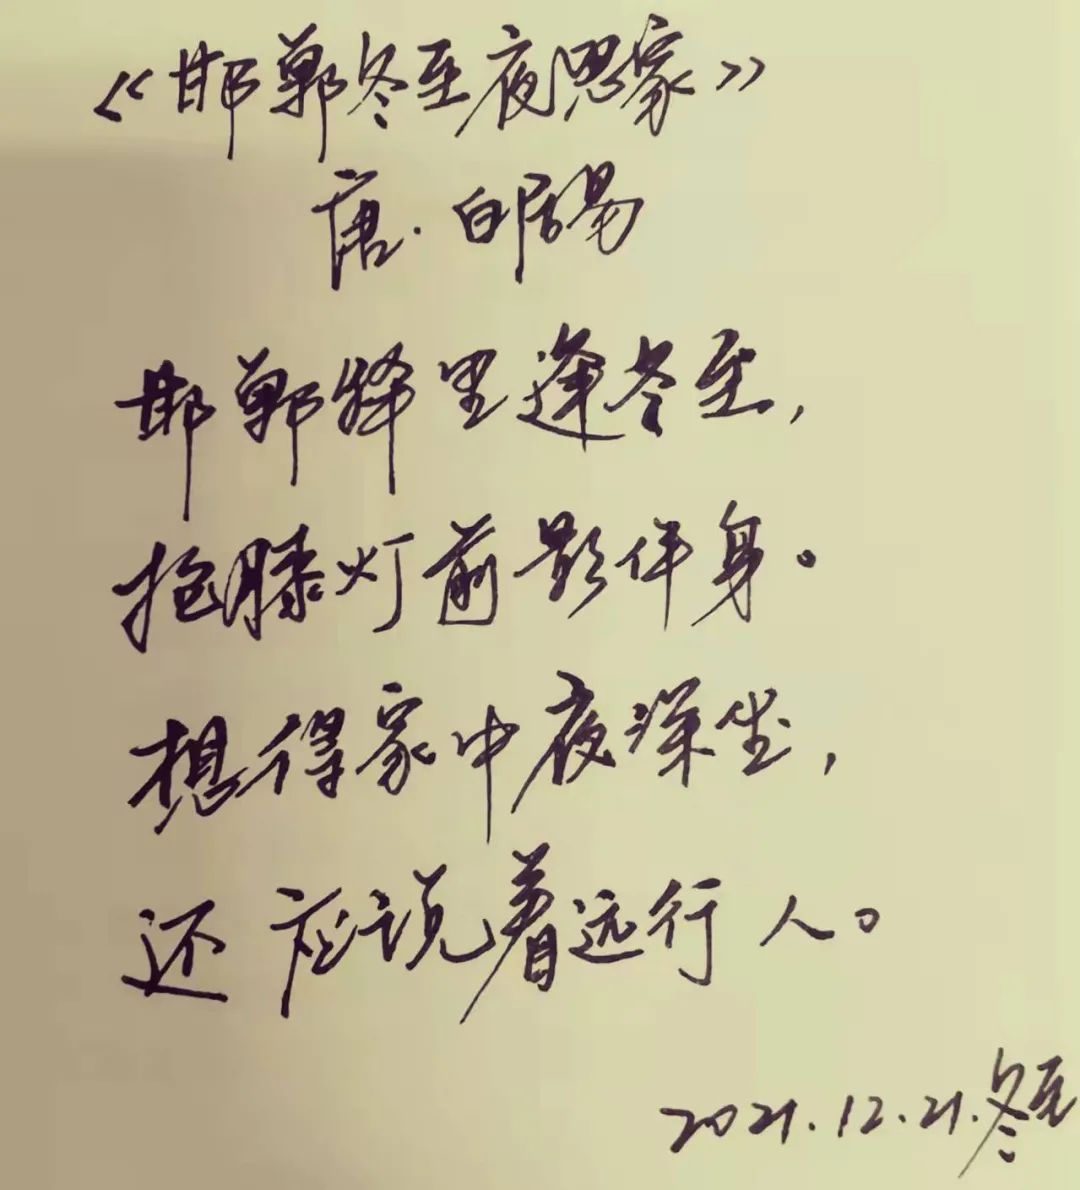 《邯郸冬至夜思家》
唐·白居易
邯郸驿里逢冬至，
抱膝灯前影伴身。
想得家中夜深坐，
还应说着远行人。
2021.12.21.冬至